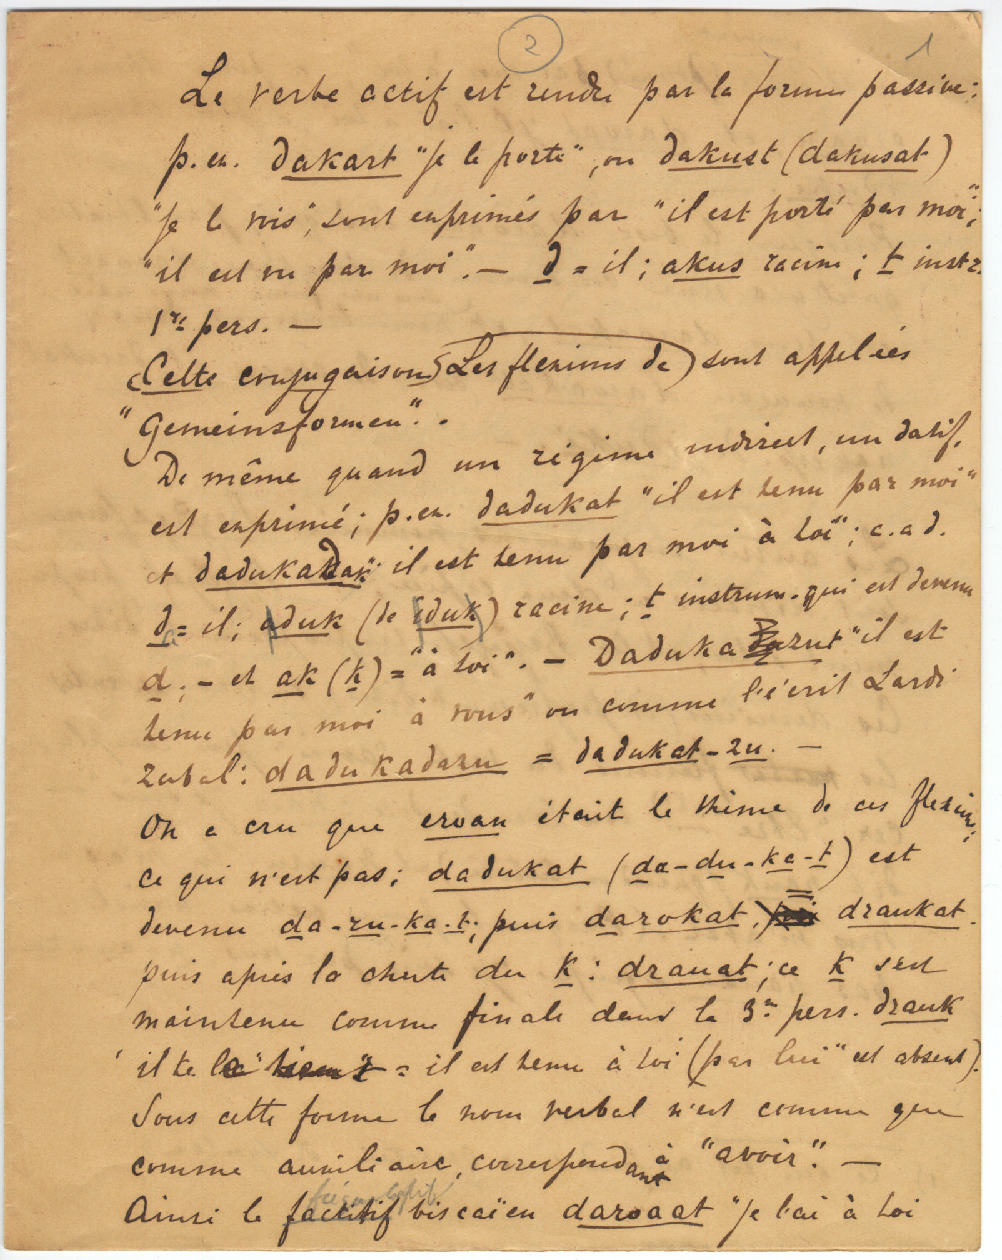 2 1
Le verbe actif est rendu par la forme passive;
p. ex. dakart "je le porte", ou dakust (dakusat)
"je le vois", sont exprimés par "il est porté par moi";
"il est vu par moi". — d = il; akus racine; t instr.
1re pers. —
(Cette conjugaison) (Les flexions de) sont appelées
"Gemeinsformen".
De même quand un régime indirect, un datif,
est exprimé; p. ex. dadukat "il est tenu par moi"
et dadukadak "il est tenu par moi à toi"; c.a d.
d = il; aduk (de iduk) racine; t instrum. qui est devenu
d; — et ak (k) = "à toi". — Daduka zut "il est
tenu par moi à vous" ou comme l'écrit Lardi
zabal: dadukadazu = dadukat-zu. —
On a cru que eroan était le thème de ces flexions;
ce qui n'est pas; dadukat (da-du-ka-t) est
devenu da-ru-ka-t; puis darokat, draukat.
puis après la chute du k: drauat; ce k s'est
maintenu comme finale dans la 3me pers. drauk
"il te le tient" = il est tenu à toi (par lui" est absent).
Sous cette forme le nom verbal n'est comme que
comme auxiliaire, correspondant à "avoir". —
Ainsi le factitif biscaïen daroaat "je l'ai à toi